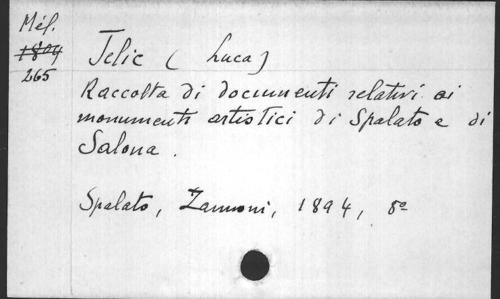 Mél.
1804
265
Jelic (Luca)
Raccolta di documenti relativi ai
monumenti artistici di Spalato e di
Salona.
Spalato, Zannoni, 1894, 8º